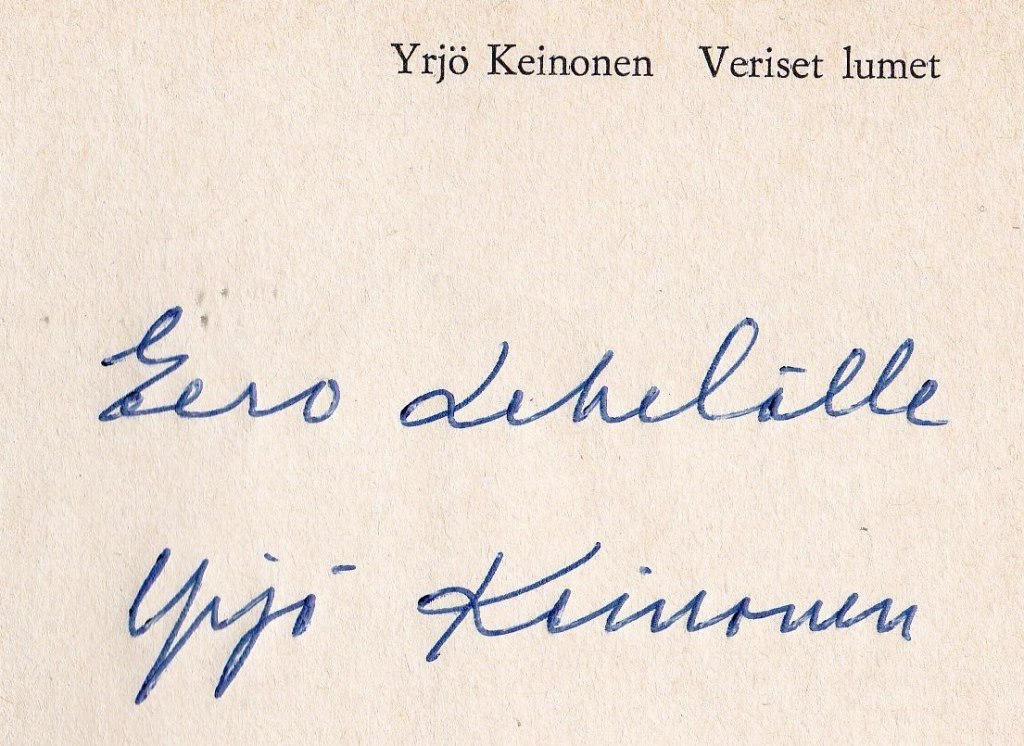 Yrjö Keinonen Veriset lumet
Eero Lehelälle
Yrjö Keinonen